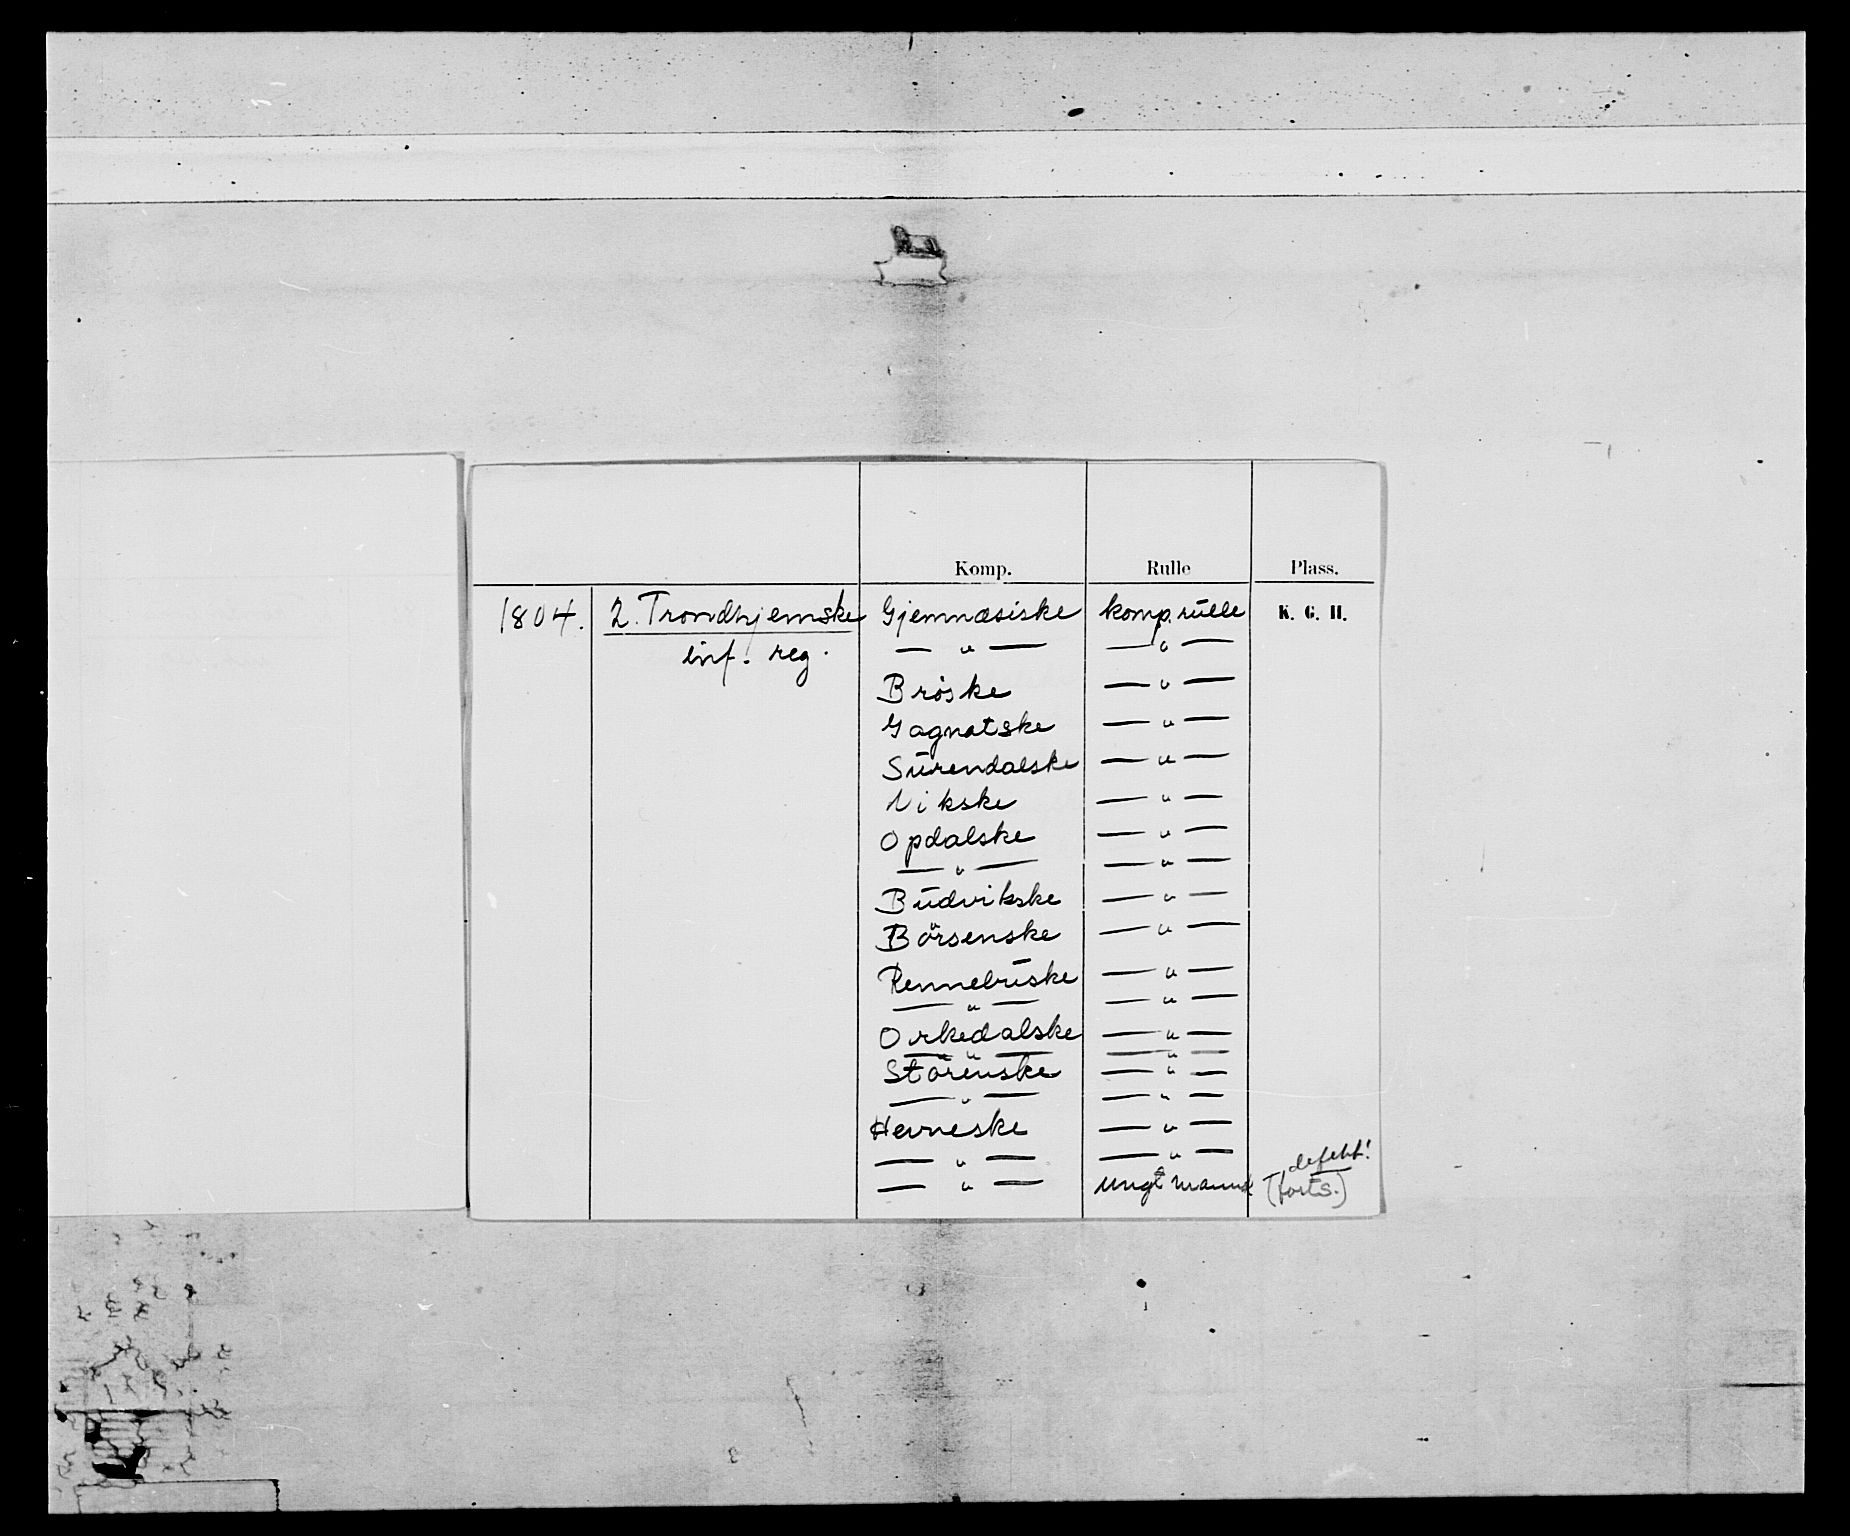 Komp. Rulle Plass.
1804. 2. Trondhjemske Gjemnæsiske komp. rulle K. G. H.
inf. reg. — " — — " —
Brøske — " —
Gagnatske — " —
Surendalske — " —
Vikske — " —
Opdalske — " —
— " — — " —
Budvikske — " —
Börsenske — " —
Rennebuske — " —
— " — — " —
Orkedalske — " —
— " — — " —
Størenske — " —
— " — — " —
Hevneske — " —
— " — — " — defekt!
— " — ungt mannsk. (forts.)